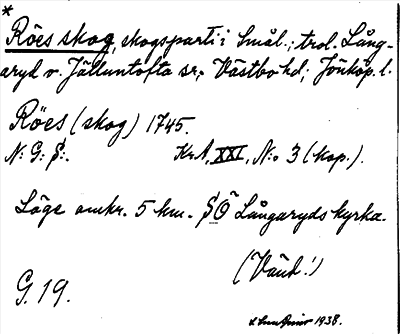 *
Röes skog, skogsparti i Smål.; trol. Lång-
aryd o. Jälluntofta sr, Västbo hd; Jönköp. l.
Röes (skog) 1745.
N: G: S:.
Kr.A, XXI, N:o 3 (kop.).
Läge omkr. 5 km. SO Långaryds kyrka.
(Vänd!)
G. 19.
1938.